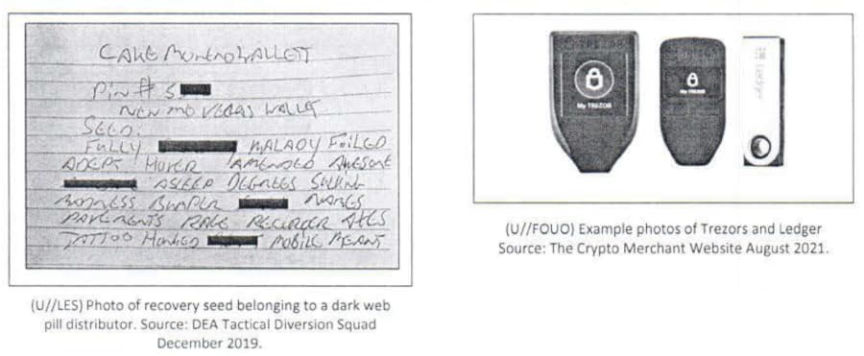 CAKE MONERO WALLET
PIN # 5
NEW MO VEGAS WALLET
SEED:
FULLY MALADY FOILED
ADEPT HOVER AMENDED AWESOME
ASLEEP DEGREES SULKING
BUSINESS BUMPER NAMES
PAVEMENTS RAGE RECORDER AXES
TATTOO HONKED MOBILE MEANT
(U//LES) Photo of recovery seed belonging to a dark web
pill distributor. Source: DEA Tactical Diversion Squad
December 2019.
My TREZOR
My TREZOR
Ledger
(U//FOUO) Example photos of Trezors and Ledger
Source: The Crypto Merchant Website August 2021.